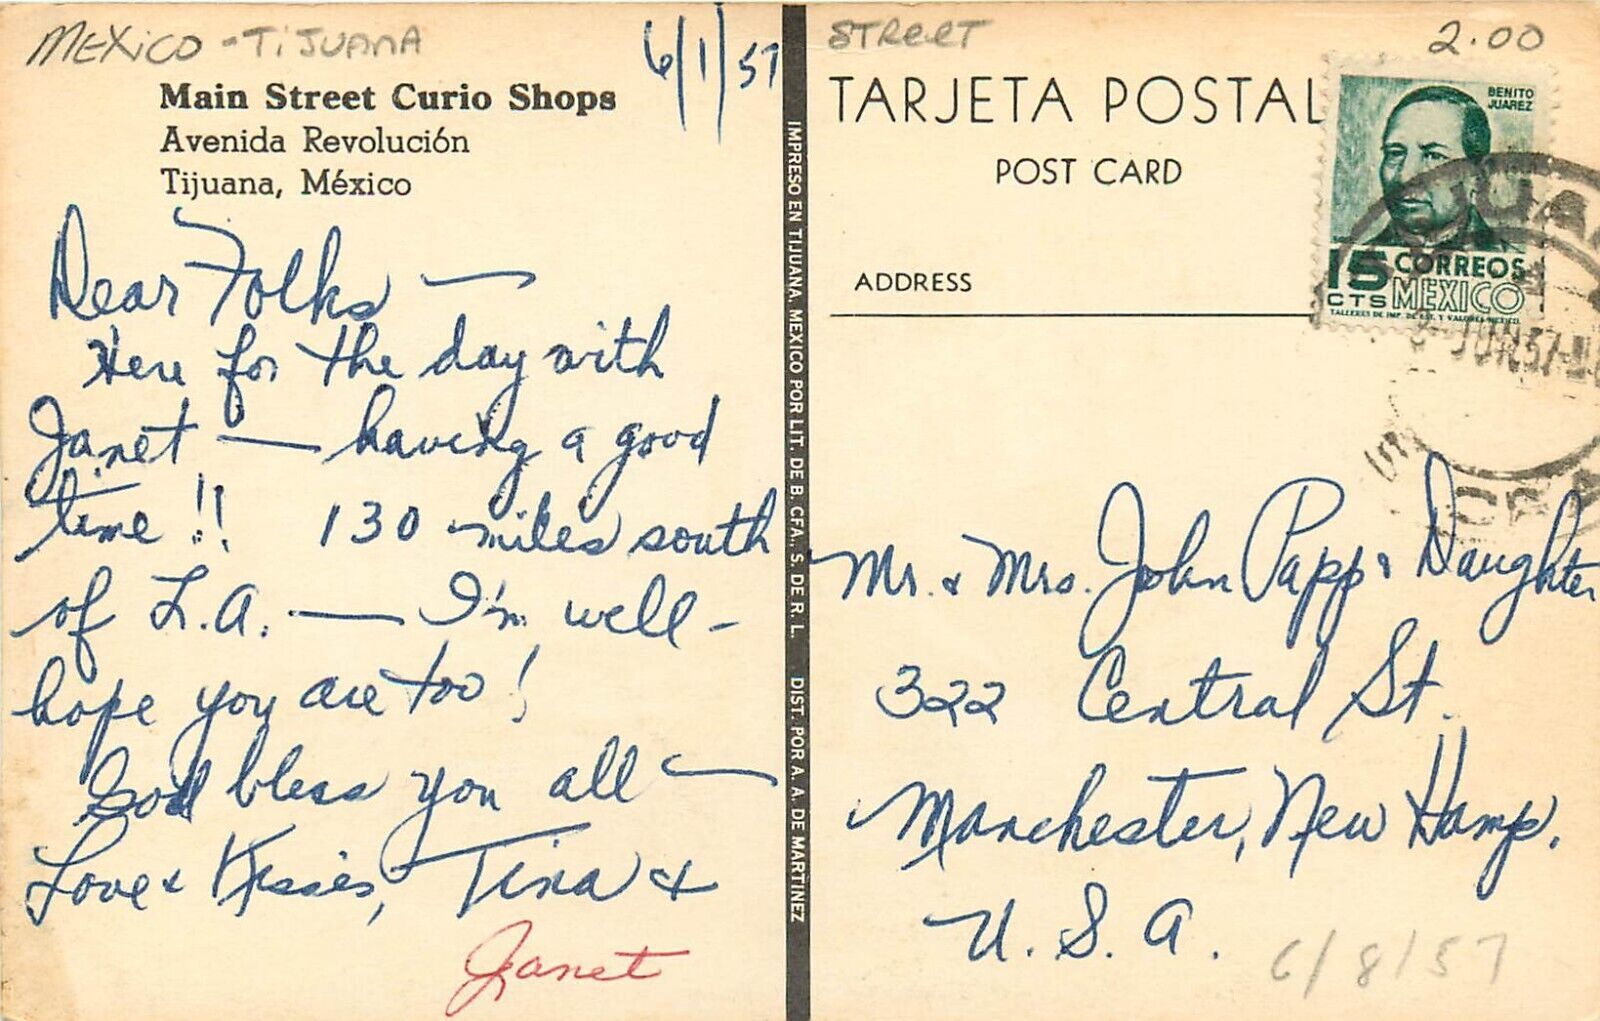 MEXICO - TIJUANA
6/1/57
Main Street Curio Shops
Avenida Revolución
Tijuana, México
Dear Folks —
Here for the day with
Janet — having a good
time!! 130 miles south
of L.A. — I'm well -
hope you are too!
God bless you all —
Love & Kisses, Tina &
Janet
IMPRESO EN TIJUANA, MEXICO POR LIT. DE B. CFA., S. DE R. L. DIST. POR A. A. DE MARTINEZ
STREET
2.00
TARJETA POSTAL
POST CARD
ADDRESS
BENITO
JUAREZ
15 CORREOS
CTS MEXICO
TALLERES DE IMP. DE EST. Y VALORES-MEXICO.
JUN 57
Mr. & Mrs. John Papp & Daughter
322 Central St.
Manchester, New Hamp.
U.S.A.
6/8/57